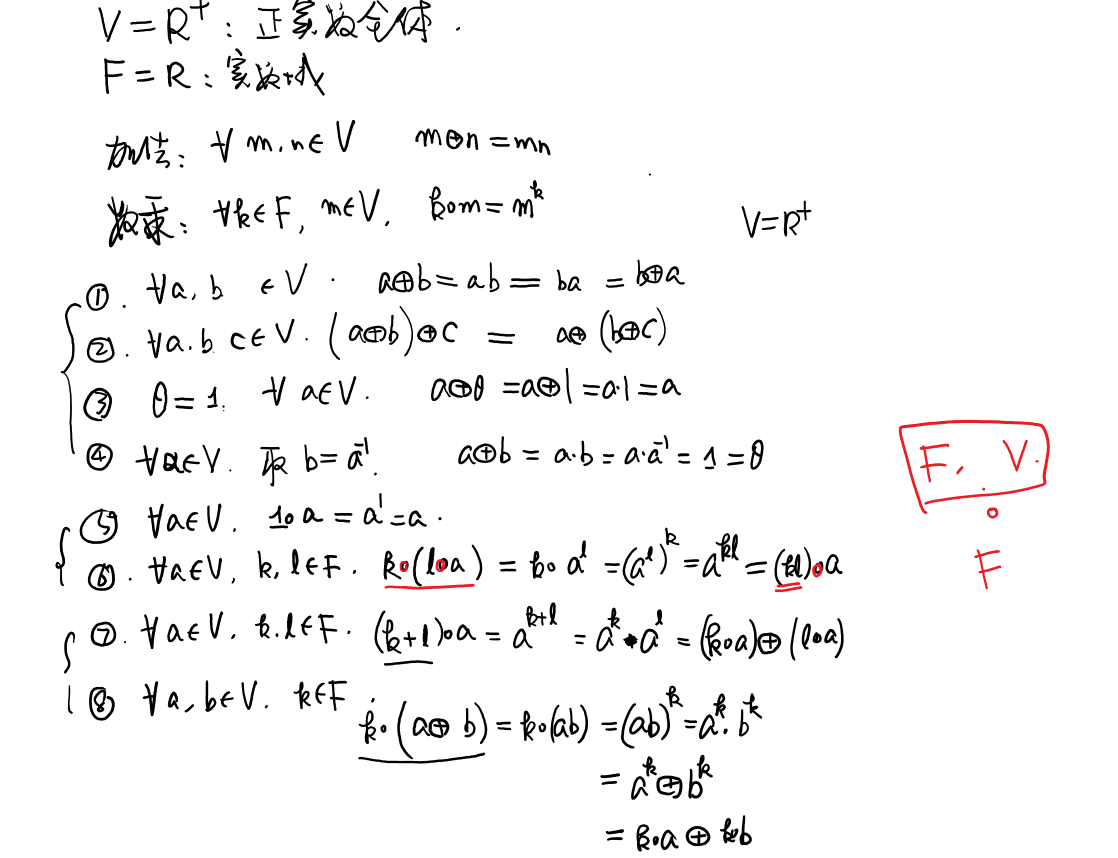 V=R⁺: 正实数全体.
F=R: 实数域
加法: ∀ m,n∈V m⊕n=mn
数乘: ∀k∈F, m∈V, k∘m=mᵏ
V=R⁺
①. ∀a, b ∈V. a⊕b=ab=ba=b⊕a
②. ∀a.b c∈V. (a⊕b)⊕c = a⊕(b⊕c)
③ θ=1. ∀ a∈V. a⊕θ=a⊕1=a·1=a
④ ∀a∈V. 取 b=a⁻¹. a⊕b=a·b=a·a⁻¹=1=θ
F, V.
⑤ ∀a∈V. 1∘a=a¹=a.
∘
⑥. ∀a∈V, k, l∈F. k∘(l∘a)=k∘aˡ=(aˡ)ᵏ=aᵏˡ=(kl)∘a
F
⑦. ∀a∈V. k.l∈F. (k+l)∘a=aᵏ⁺ˡ=aᵏ·aˡ=(k∘a)⊕(l∘a)
⑧ ∀a,b∈V. k∈F.
k∘(a⊕b)=k∘(ab)=(ab)ᵏ=aᵏ·bᵏ
=aᵏ⊕bᵏ
=k∘a⊕k∘b